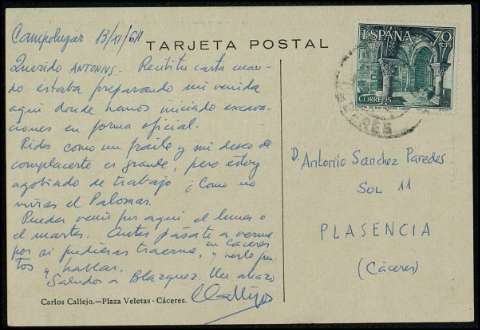 Campolugar 13/XI/64
TARJETA POSTAL
Querido ANTONIO. Recibí tu carta cuan-
do estaba preparando mi venida
aquí donde hemos iniciado excava-
ciones en forma oficial.
Pides como un fraile y mi deseo de
complacerte es grande, pero estoy
agobiado de trabajo ¿Como no
vinieras el Palomar.
Puedes venir por aquí el lunes o
el martes. Antes pásate a verme
por si pudieras traerme, en Cáceres
y hablar.
Saludos a Blazquez. Un abrazo
Callejo
Carlos Callejo.—Plaza Veletas - Cáceres.
ESPAÑA 70 CTS
CORREOS
CACERES
D. Antonio Sanchez Paredes
SOL 11
PLASENCIA
(Cáceres)